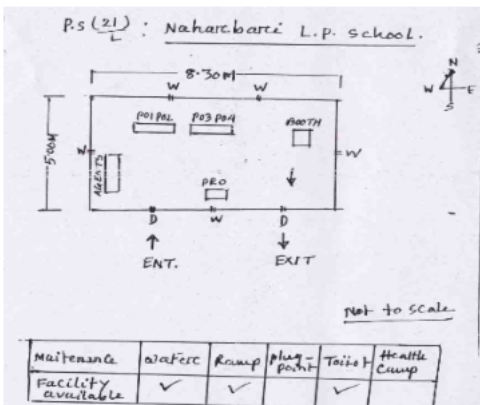 P.S (21)/L : Naharcbari L.P. School.
N
W E
S
8.30M
W W
PO1 PO2 PO3 PO4 BOOTH
500M
W W
AGENTS
PRO
D W D
ENT. EXIT
Not to scale
Maitenance Waterc Ramp plug-point Toilot Health Camp
Facility available ✓ ✓ ✓